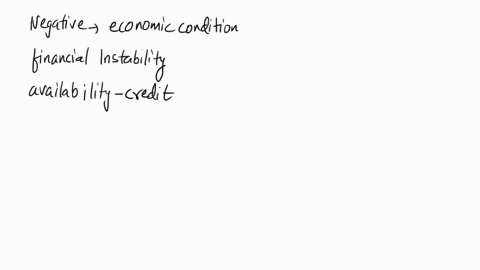 Negative → economic condition
financial Instability
availability - credit